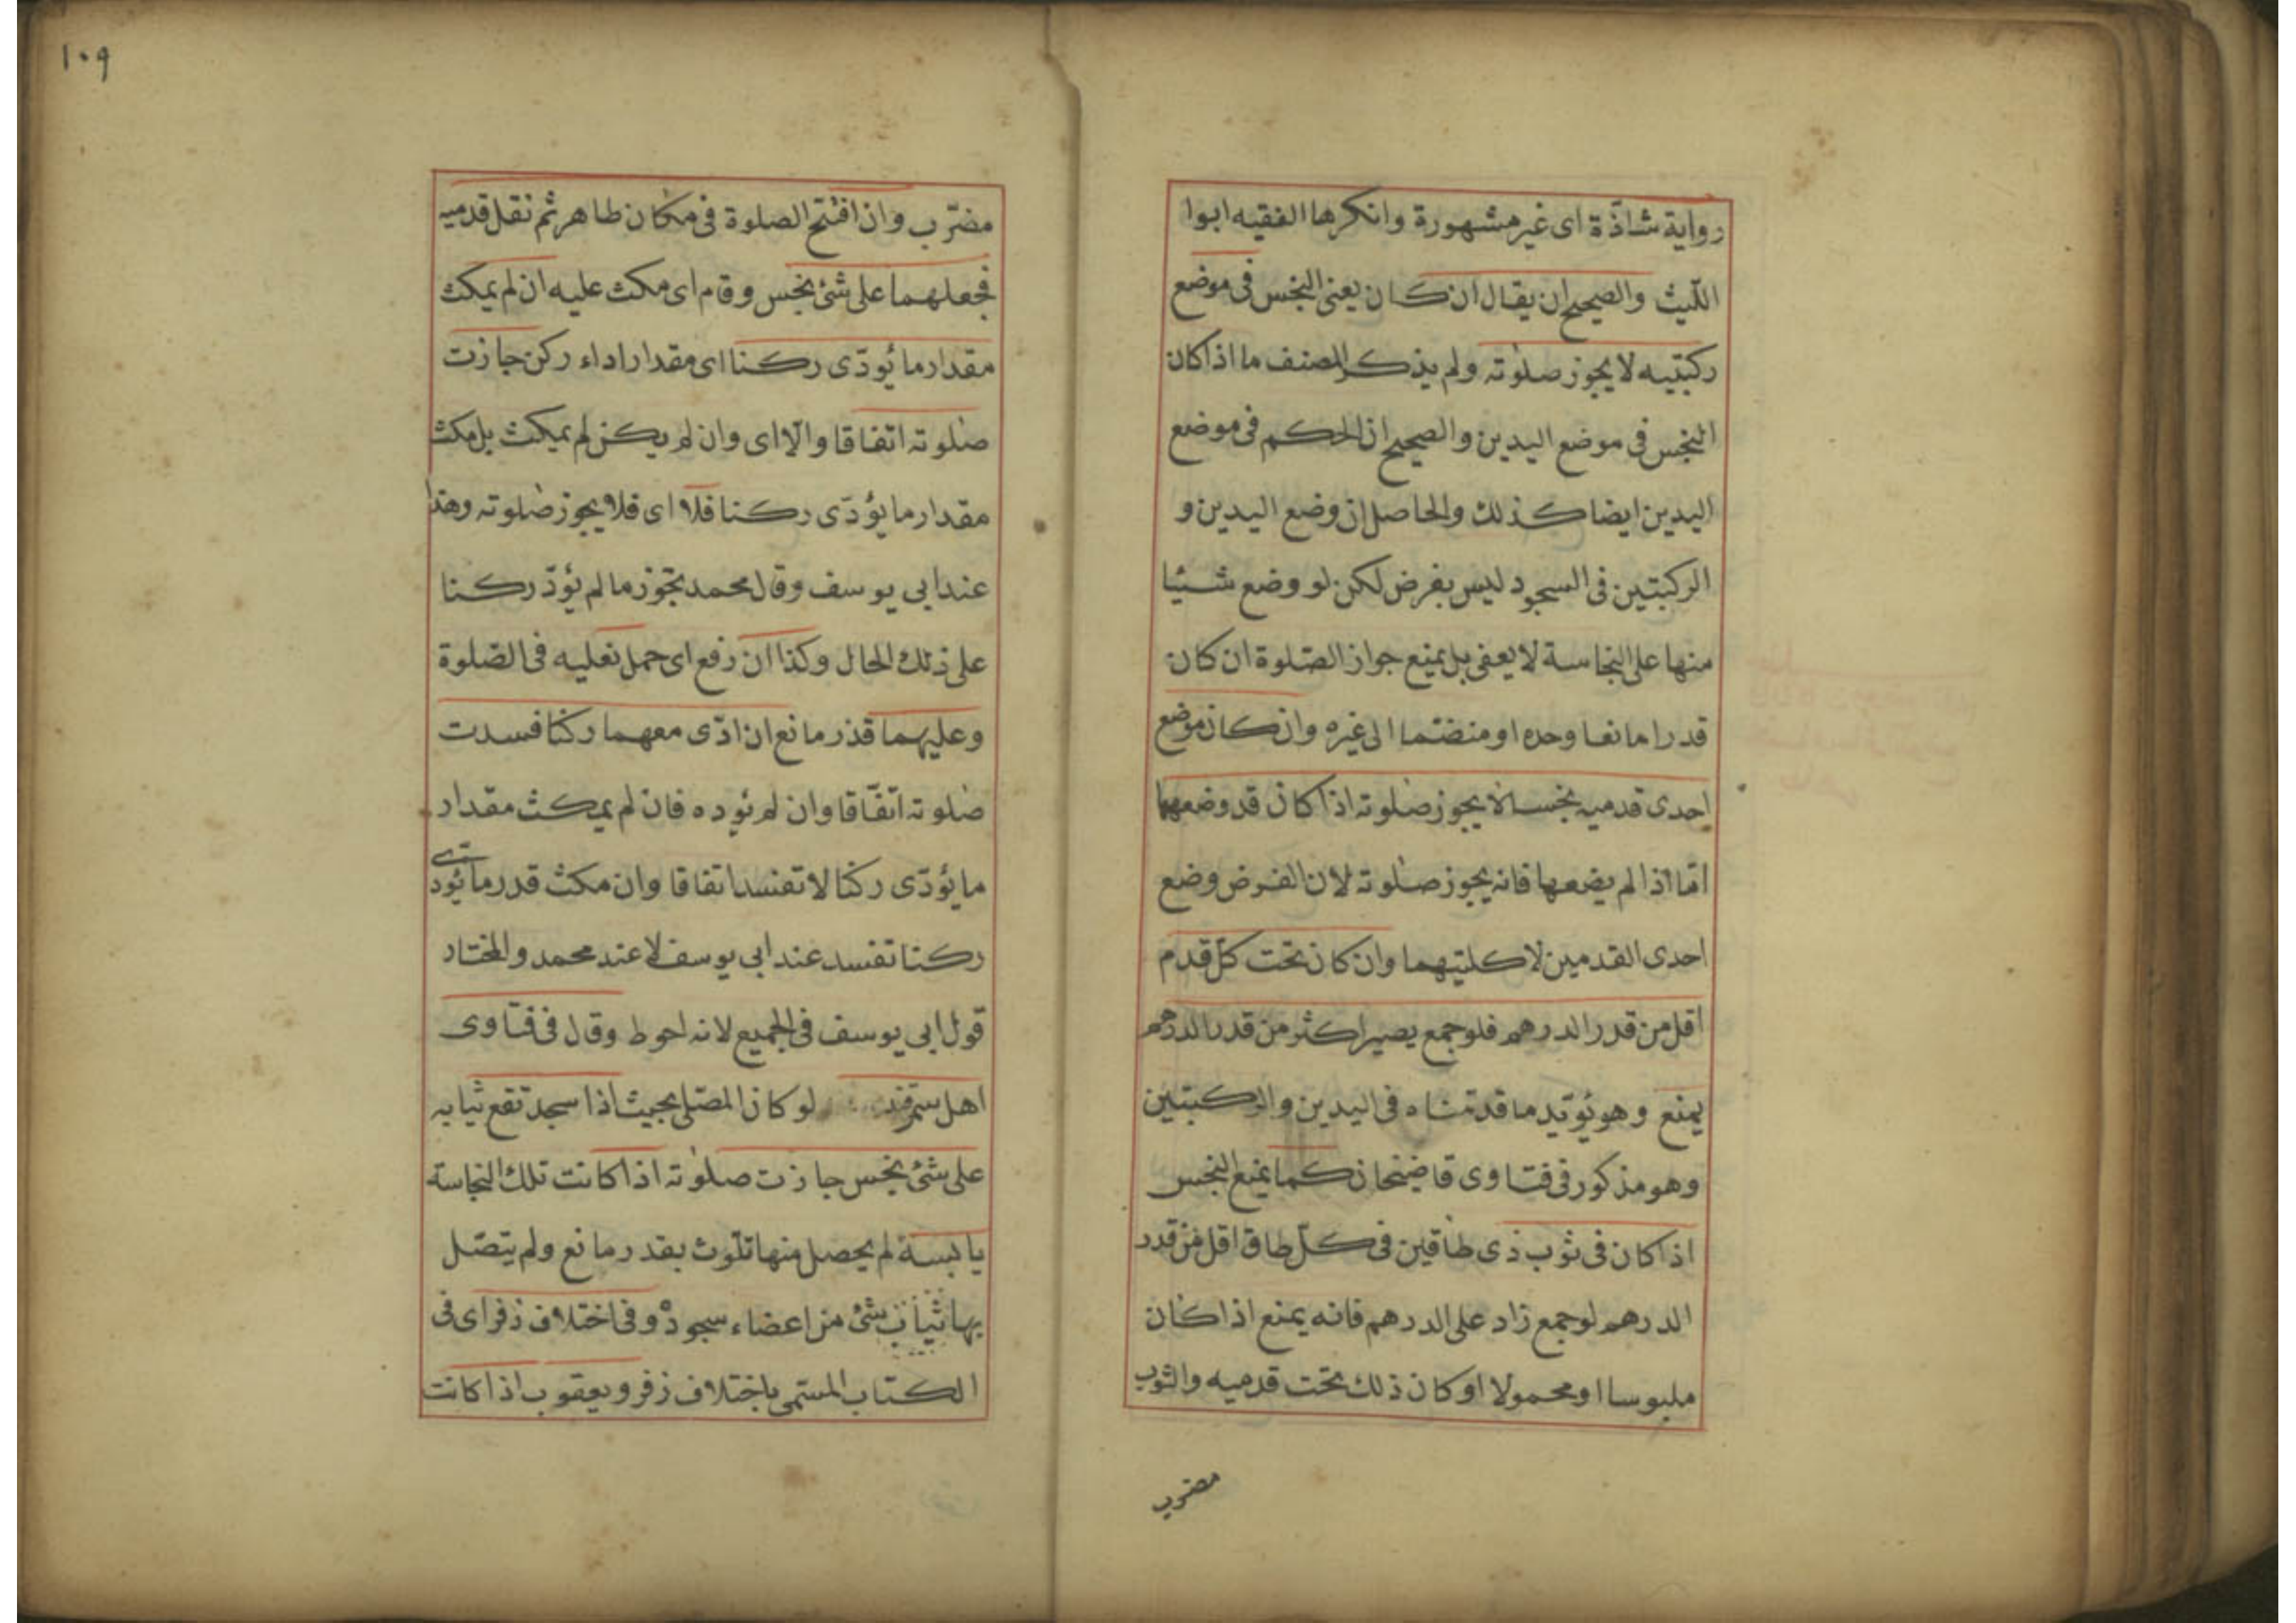 رواية شاذّة اى غير مشهورة وانكرها الفقيه ابوا
اللّيث والصحيح ان يقال ان كان يعنى النجس فى موضع
ركبتيه لا يجوز صلوته ولم يذكر المصنف ما اذا كان
النجس فى موضع اليدين والصحيح ان الحكم فى موضع
اليدين ايضا كذلك والحاصل ان وضع اليدين و
الركبتين فى السجود ليس بفرض لكن لو وضع شيئا
منها على النجاسة لا يعفى بل يمنع جواز الصّلوة ان كان
قدرا مانعا وحده او منضمّا الى غيره وان كان موضع
احدى قدميه نجسا لا يجوز صلوته اذا كان قد وضعها
امّا اذا لم يضعها فانه يجوز صلوته لان الفرض وضع
احدى القدمين لا كلتيهما وان كان تحت كلّ قدم
اقل من قدر الدرهم فلو جمع يصير اكثر من قدر الدرهم
يمنع وهو يؤيّد ما قدمناه فى اليدين والركبتين
وهو مذكور فى فتاوى قاضيخان كما يمنع النجس
اذا كان فى ثوب ذى طاقين فى كلّ طاق اقل من قدر
الدرهم لو جمع زاد على الدرهم فانه يمنع اذا كان
ملبوسا او محمولا او كان ذلك تحت قدميه والثوب
مضرب
١٠٩
مضرّب وان افتتح الصلوة فى مكان طاهر ثم نقل قدميه
فجعلهما على شئ نجس وقام اى مكث عليه ان لم يمكث
مقدار ما يُودّى ركنا اى مقدار اداء ركن جازت
صلوته اتفاقا والّا اى وان لم يكن لم يمكث بل مكث
مقدار ما يؤدّى ركنا فلا اى فلا يجوز صلوته وهذا
عند ابى يوسف وقال محمد تجوز ما لم يؤدّ ركنا
على ذلك الحال وكذا ان رفع اى حمل نعليه فى الصّلوة
وعليهما قذر مانع ان ادّى معهما ركنا فسدت
صلوته اتّفاقا وان لم يؤده فان لم يمكث مقدار
ما يؤدّى ركنا لا تفسد اتفاقا وان مكث قدر ما يؤدى
ركنا تفسد عند ابى يوسف لا عند محمد والمختار
قول ابى يوسف فى الجميع لانه احوط وقال فى فتاوى
اهل سمرقند لو كان المصلى بحيث اذا سجد تقع ثيابه
على شئ نجس جازت صلوته اذا كانت تلك النجاسة
يابسة لم يحصل منها تلوث بقدر مانع ولم يتصّل
بها ثياب شئ من اعضاء سجوده وفى اختلاف زفر اى فى
الكتاب المسمى باختلاف زفر ويعقوب اذا كانت